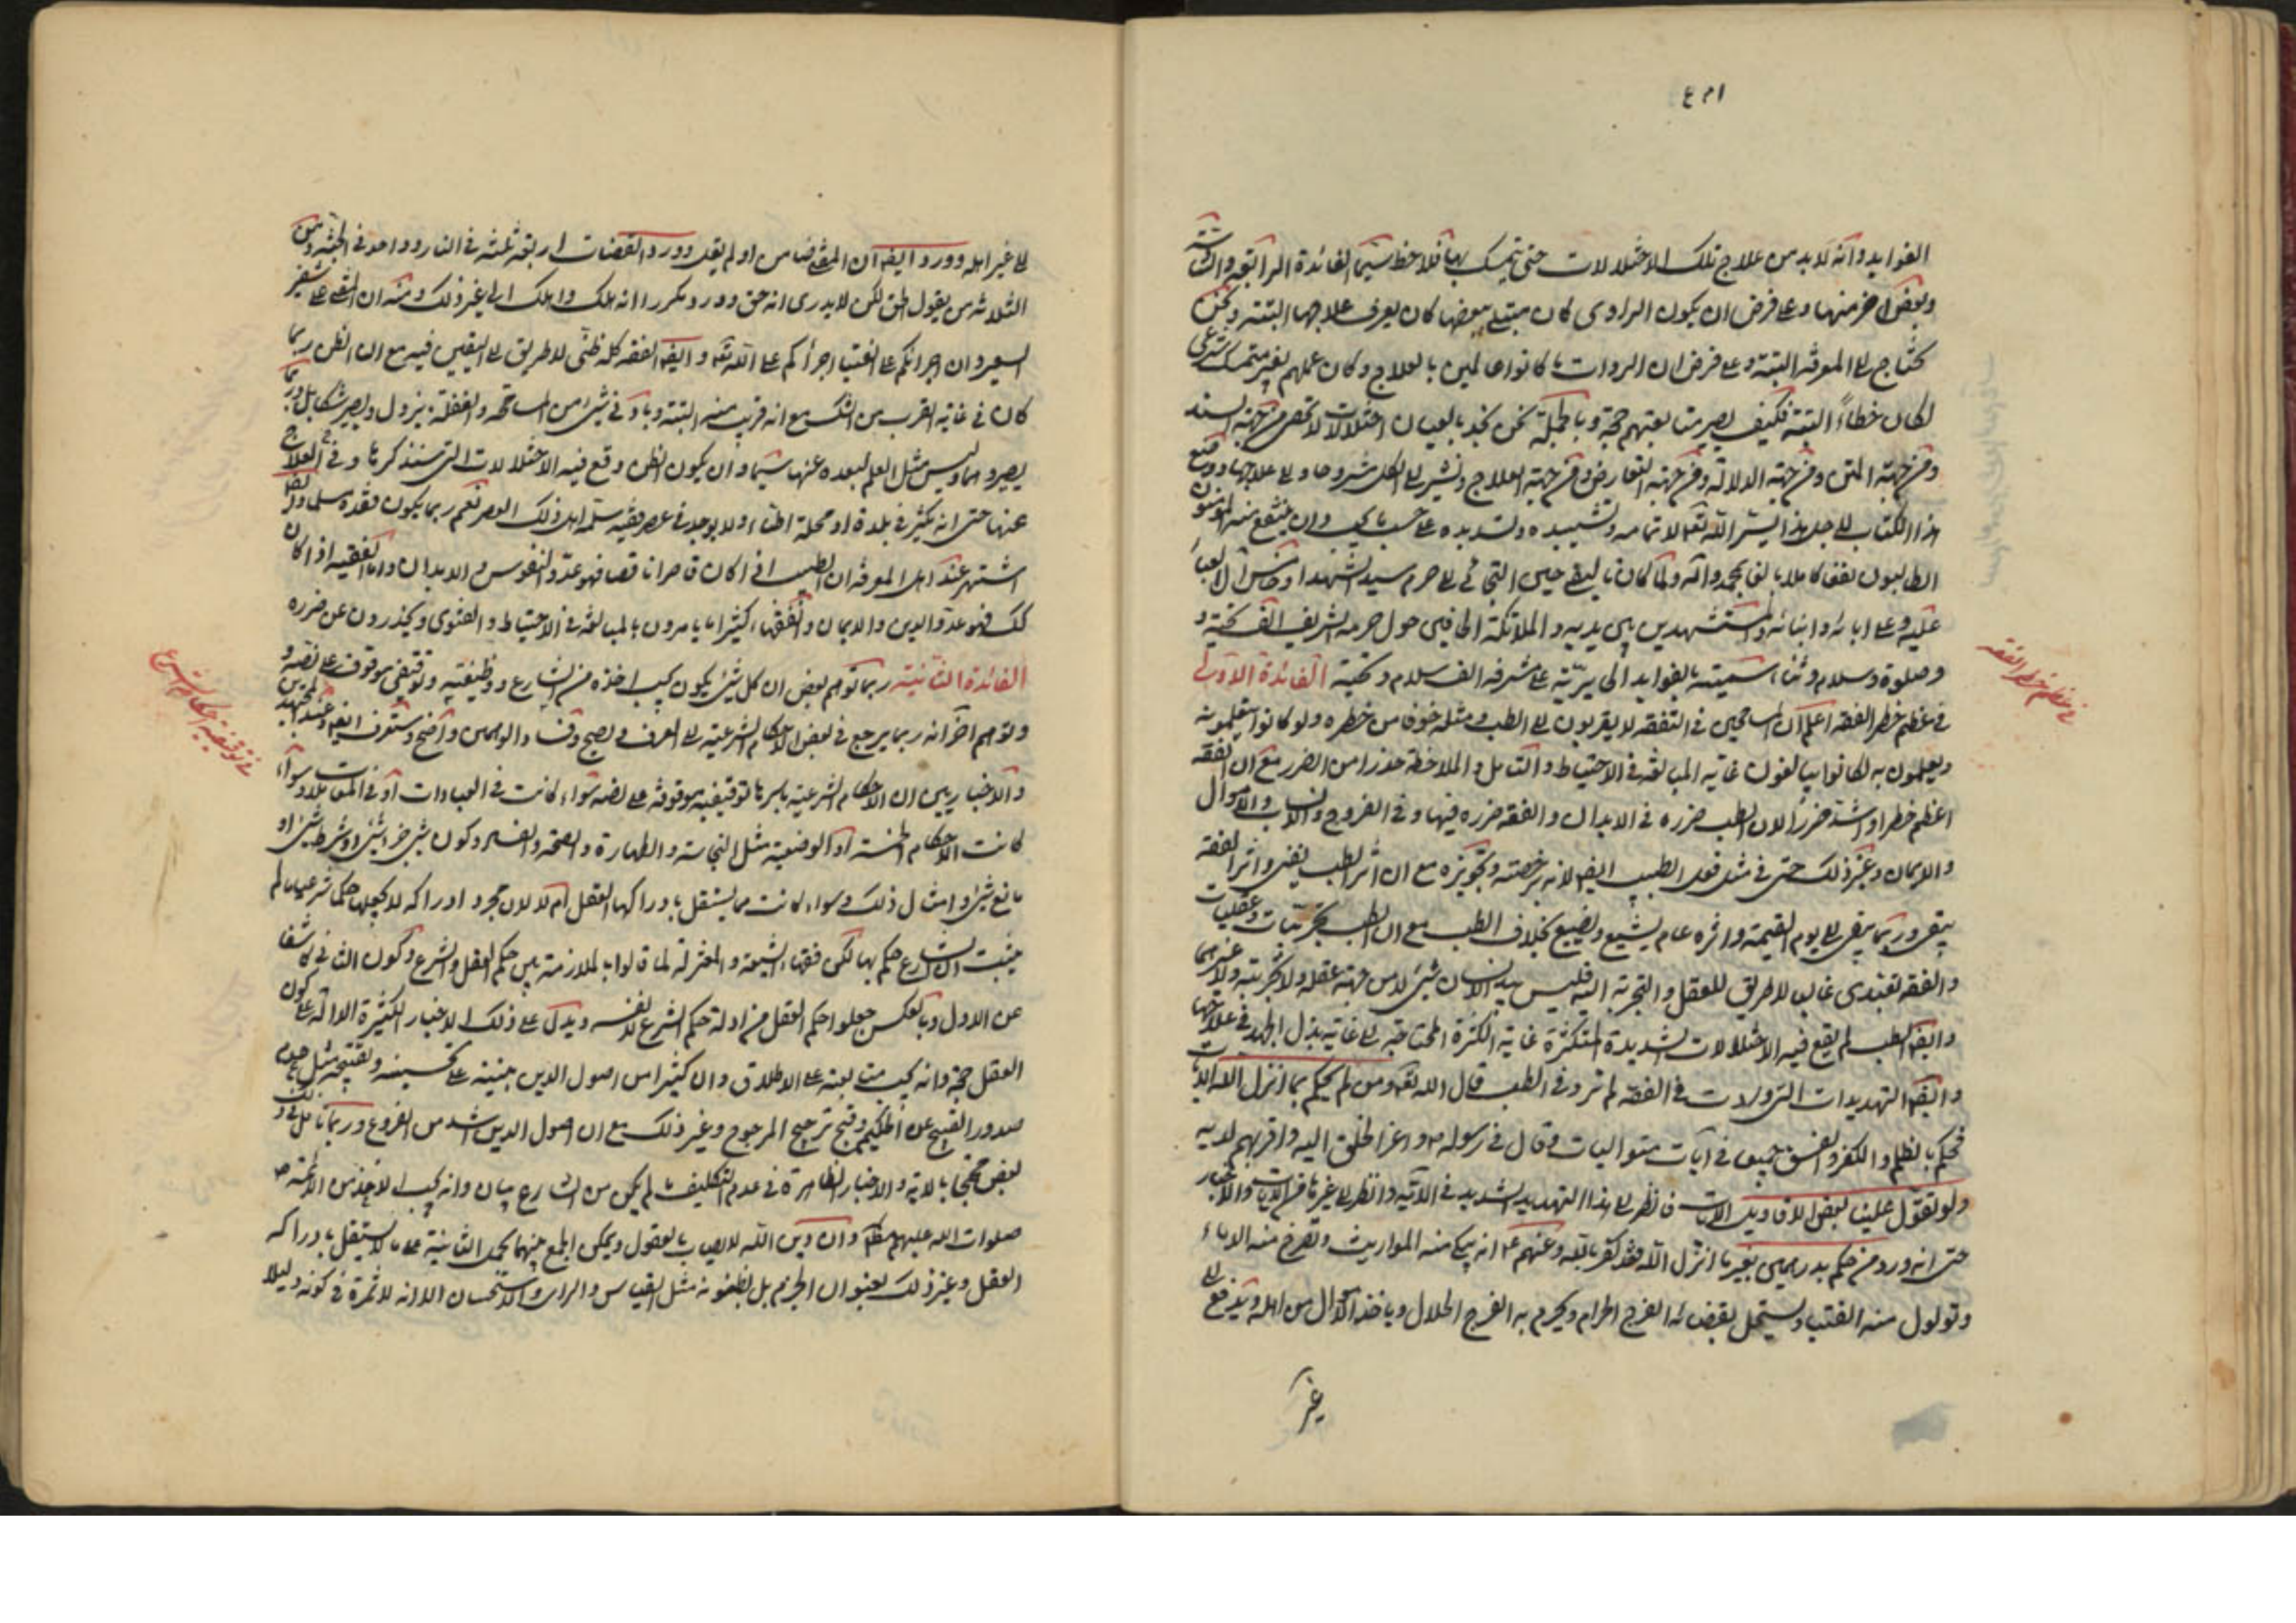 الفوايد وانه لابد من علاج تلك الاختلالات حتى يتمسك بها فلاحظ سيما الفائدة الرابعة
وبعض اخر منها وعلى فرض ان يكون الراوى كان مبتلى ببعضها كان يعرف علاجها البتة ونحن
نحتاج الى المعرفة البتة وعلى فرض ان الروات ما كانوا عالمين بالعلاج وكان عملهم بغير متمسك شرعى
لكان خطاءً البتة فكيف يصير متابعتهم حجة وبالجملة نحن نجد بالعيان اختلالات لا تحصى من جهة السند
ومن جهة المتن ومن جهة الدلالة ومن جهة التعارض ومن جهة العلاج ونشير الى الكل مشروحا والى علاجها ووضع
هذا الكتاب لاجل هذا يسر الله تعه لاتمامه وتشييده وتسديده على حسب ما يجب وان ينتفع منه المؤمنون
الطالبون نفعا كاملا بالغا بمحمد واله ولما كان تاليفى حين التجائى الى حرم سيد الشهداء وخامس ال العباء
عليه وعلى ابائه وابنائه والمستشهدين بين يديه والملائكة الحافين حول حرمه الشريف الف تحية و
وصلوة وسلام وثناء سميته بالفوايد الحايرية على مشرفه الف سلام وتحية الفائدة الاولى
فى عظم خطر الفقه اعلم ان المسامحين فى التفقه لا يقربون الى الطب ومثله خوفا من خطره ولو كانوا يتعلمونه
ويعملون به لكانوا يبالغون غاية المبالغة فى الاحتياط والتامل والملاحظة حذرا من الضرر مع ان الفقه
اعظم خطرا واشد ضررا لان الطب ضرره فى الابدان والفقه ضرره فيها وفى الفروج والانساب والاموال
والايمان وغير ذلك حتى فى مثل فعل الطبيب ايضا لانه برخصته وتجويزه مع ان اثر الطب يفنى واثر الفقه
يبقى وربما يبقى الى يوم القيمة واثره عام يشيع ويضيع بخلاف الطب مع ان الطب تجربيات وعقليات
والفقه تعبدى غالبا لا طريق للعقل والتجربة اليه فليس بيد الانسان شئ لا من جهة عقله ولا تجربته ولا غيرهما
وايضا الطب لم يقع فيه الاختلالات الشديدة المتكثرة غاية الكثرة المحتاجة الى غاية بذل الجهد فى علاجها
وايضا التهديدات التى وردت فى الفقه لم ترد فى الطب قال الله تعه ومن لم يحكم بما انزل الله الايات
فحكم بالظلم والكفر والفسق جميعا فى آيات متواليات وقال فى رسوله ص واعز الخلق اليه واقربهم لديه
ولو تقول علينا بعض الاقاويل الايات فانظر الى هذا التهديد الشديد فى الآية وانظر الى غيرها من الايات والاخبار
حتى انه ورد من حكم بدرهمين بغير ما انزل الله فقد كفر بالله وعنهم ع انه يبكى منه المواريث وتصرخ منه الدماء
وتولول منه الفتيا ويستحل بقضائه الفرج الحرام ويحرم به الفرج الحلال وياخذ المال من اهله ويدفع الى
غير
فى عظم خطر الفقه
الى غير اهله وورد ايضا ان المفتى ضامن او لم يقل وورد القضات اربعة ثلثة فى النار وواحد فى الجنة ومن
الثلاثة من يقول الحق لكن لا يدرى انه حق وورد مكررا انه هلك واهلك الى غير ذلك ومنه ان المفتى على شفير
السعير وان اجرائكم على الفتيا اجرأكم على الله تعه وايضا الفقه كله ظنى لا طريق الى اليقين فيه مع ان الظن ربما
كان فى غاية القرب من الشك مع انه قريب منه البتة وبادنى شئ من المسامحة والغفلة يزول ويصير شكا بل وربما
يصير وهما وليس مثل العلم لبعده عنها سيما وان يكون الظن وقع فيه الاختلالات التى سنذكرها وفى العلاج
عنها حتى انه يكثر فى بلدة او محلة اطباء ولا يوجد فى عصر فقيه سلمه اهل ذلك العصر نعم ربما يكون فقده سلما
اشتهر عند اهل المعرفة ان الطبيب اذا كان قاصرا ناقصا فهو عدو النفوس والابدان واما الفقيه اذا كان
كك فهو عدو الدين والايمان والفقهاء كثيرا ما يامرون بالمبالغة فى الاحتياط والفتوى ويحذرون عن ضرره
الفائدة الثانية ربما توهم بعض ان كل شئ يكون يجب اخذه من الشارع ووظيفته وتوقيفى موقوف على نصه و
وتوهم اخر انه ربما يرجع فى بعض الاحكام الشرعية الى العرف
والاخباريين ان الاحكام الشرعية باسرها توقيفية موقوفة على نصه سواء كانت فى العبادات او فى المعاملات وسواء
كانت الاحكام الخمسة او الوضعية مثل النجاسة والطهارة والصحة والفساد وكون شئ جزء شئ او شرط شئ او
مانع شئ وامثال ذلك وسواء كانت مما يستقل بادراكها العقل ام لا لان مجرد ادراكه لا يجعلها حكما شرعيا ما لم
يثبت ان الشارع حكم بها لكن فقهاء الشيعة والمعتزلة لما قالوا بالملازمة بين حكم العقل والشرع وكون الثانى كاشفا
عن الاول وبالعكس جعلوا حكم العقل من ادلة حكم الشرع لا نفسه ويدل على ذلك الاخبار الكثيرة الدالة على كون
العقل حجة وانه يجب متابعته على الاطلاق وان كثيرا من اصول الدين مبنية على تحسينه وتقبيحه مثل عدم
صدور القبيح عن الحكيم وقبح ترجيح المرجوح وغير ذلك مع ان اصول الدين اشد من الفروع وربما تامل فى ذلك
بعض محتجا بالاية والاخبار الظاهرة فى عدم التكليف ما لم يكن من الشارع بيان وانه يجب الاخذ من الائمة ص
صلوات الله عليهم وان دين الله لا يصاب بالعقول ويمكن الجمع بينهما بحمل الثانية على ما لا يستقل بادراكه
العقل وغير ذلك يعنون الجزم بل يظنونه مثل القياس والراى والاستحسان الا انه لا ثمرة فى كونه دليلا
فى توقيفية الاحكام الشرعية